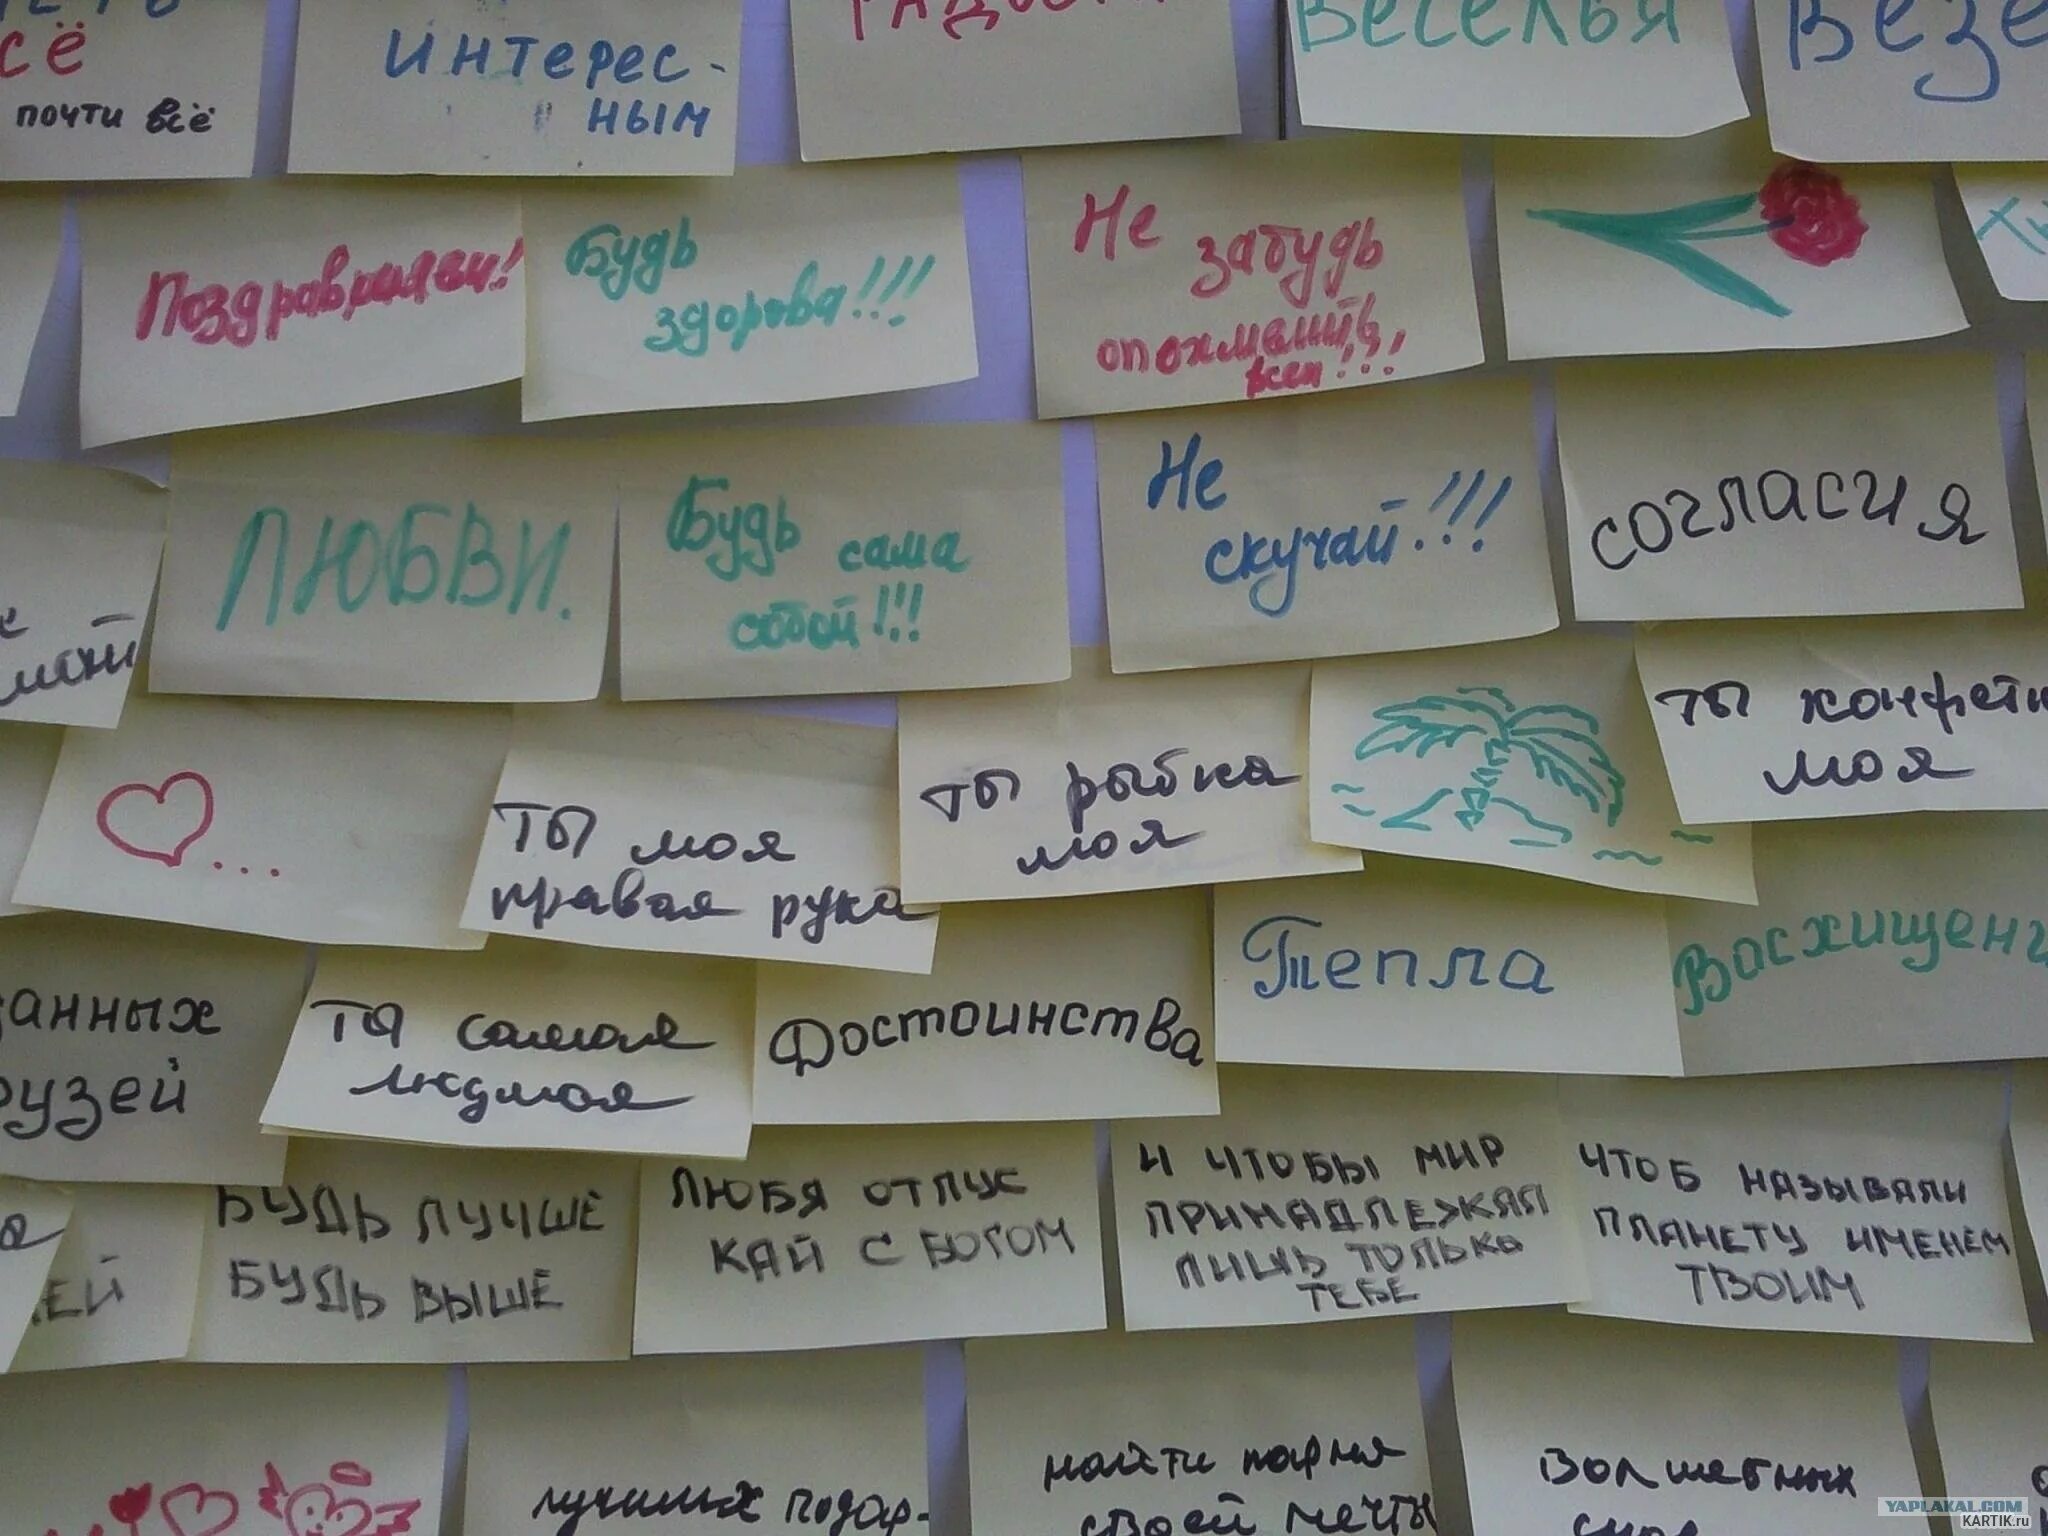 сё
почти всё
интерес-
ным
Веселья
Везе
Поздравляем!
Будь
здорова!!!
Не
забудь
опохмелить
всех!!!
ЛЮБВИ.
Будь
сама
собой!!!
Не
скучай!!!
согласия
ты моя
правая рука
ты рыбка
моя
ты конфетк
моя
данных
рузей
ты самая
людмая
Достоинства
Тепла
Восхищени
ЕЙ
БУДЬ ЛУЧШЕ
БУДЬ ВЫШЕ
ЛЮБЯ ОТПУС
КАЙ С БОГОМ
И ЧТОБЫ МИР
ПРИНАДЛЕЖАЛ
ЛИШЬ ТОЛЬКО
ТЕБЕ
ЧТОБ НАЗЫВАЛИ
ПЛАНЕТУ ИМЕНЕМ
ТВОИМ
лучших подар-
найти парня
своей мечты
волшебных
YAPLAKAL.COM
KARTIK.ru